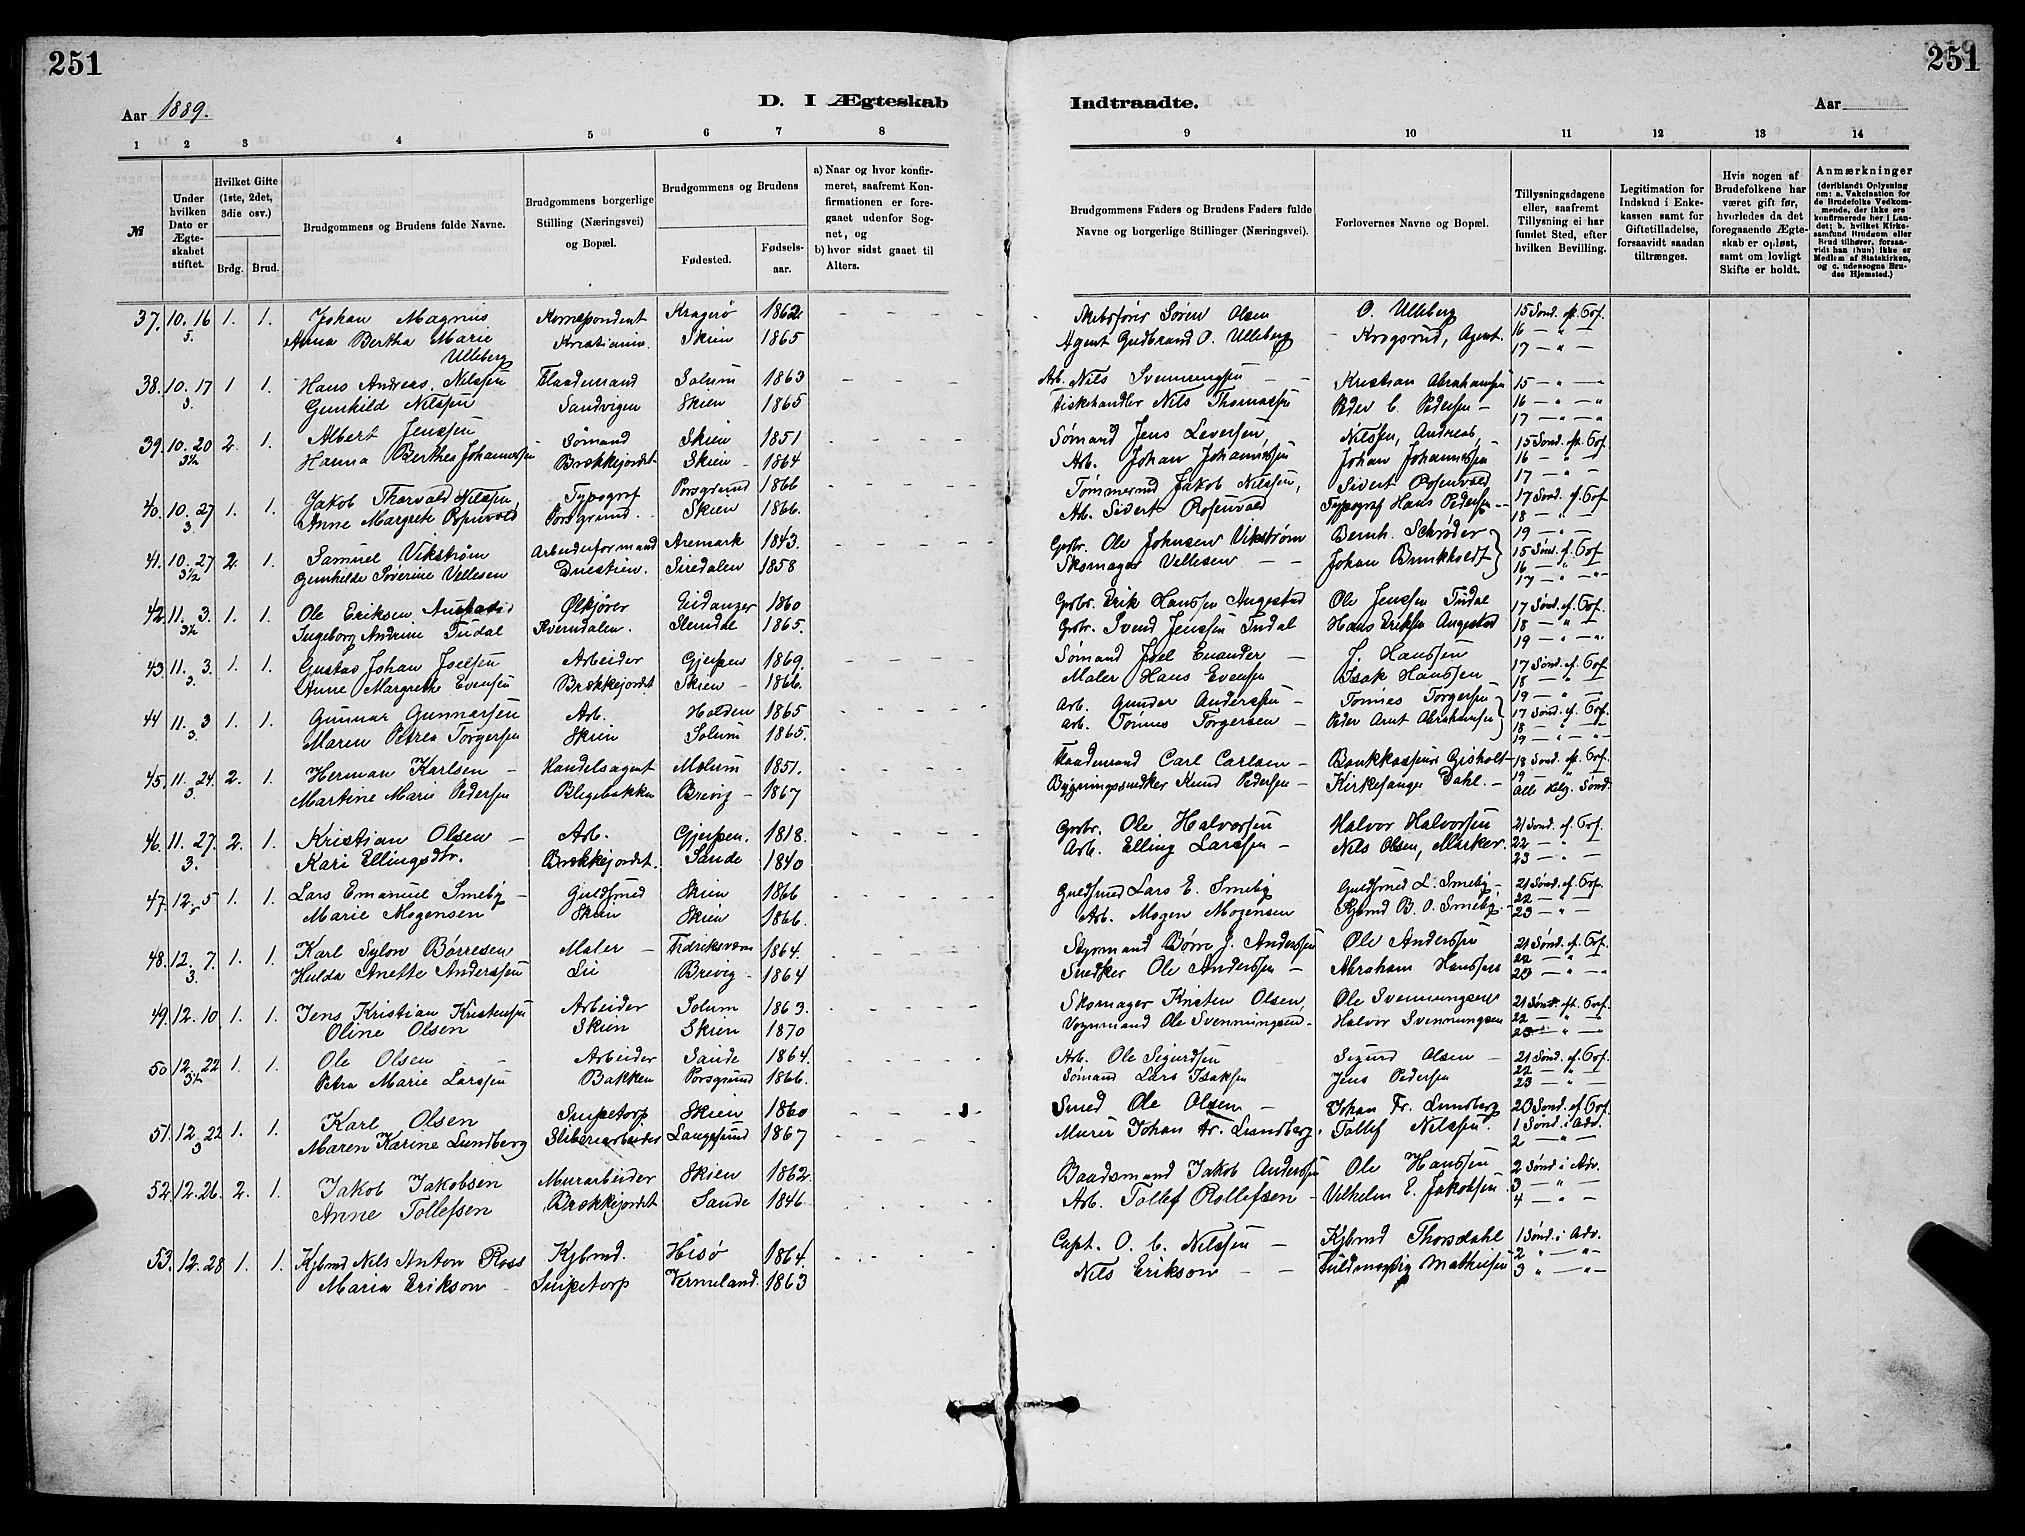 251
251
Aar 1889.
D. I Ægteskab
Indtraadte.
Aar
1 2 3 4 5 6 7 8
9 10 11 12 13 14
№
Under hvilken Dato er Ægteskabet stiftet.
Hvilket Gifte (1ste, 2det, 3die osv.)
Brdg. Brud.
Brudgommens og Brudens fulde Navne.
Brudgommens borgerlige Stilling (Næringsvei) og Bopæl.
Brudgommens og Brudens
Fødested.
Fødselsaar.
a) Naar og hvor konfirmeret, saafremt Konfirmationen er foregaaet udenfor Sognet, og
b) hvor sidst gaaet til Alters.
Brudgommens Faders og Brudens Faders fulde Navne og borgerlige Stillinger (Næringsvei).
Forlovernes Navne og Bopæl.
Tillysningsdagene eller, saafremt Tillysning ei har fundet Sted, efter hvilken Bevilling.
Legitimation for Indskud i Enkekassen samt for Giftetilladelse, forsaavidt saadan tiltrænges.
Hvis nogen af Brudefolkene har været gift før, hvorledes da det foregaaende Ægteskab er opløst, samt om lovligt Skifte er holdt.
Anmærkninger
(deriblandt Oplysning om: a. Vakcination for de Brudefolks Vedkommende, der ikke ere konfirmerede her i Landet; b. hvilket Kirkesamfund Brudgom eller Brud tilhører, forsaavidt han (hun) ikke er Medlem af Statskirken, og c. udensogns Brudes Hjemsted.)
37. 10. 16 1. 1. Johan Magnus Korrespondent Kragerø 1862. Skibsfører Søren Olsen O. Ulleberg 15 Sønd. ef. Tref.
5. Anna Bertha Marie Kristiania. Skien 1865 Agent Gudbrand O. Ulleberg Krogsrud, Agent. 16 — " —
Ulleberg 17 — " —
38. 10. 17 1 1. Hans Andreas Nilssen Flaademand Solum 1863 Arb. Nils Svenningsen Kristian Abrahamsen 15 — " —
3. Gunhild Nilssen Sandvigen Skien 1865 Fiskehandler Nils Thomassen Peder C. Pedersen 16 — " —
17 — " —
39. 10. 20 2. 1. Albert Jenssen Sømand Skien 1851 Sømand Jens Leversen, Nilssen, Andreas, 15 Sønd. ef. Tref.
3½ Hanna Berthea Johannessen Brækkejordet Skien 1864 Arb. Johan Johannessen Johan Johannessen 16 — " —
17 — " —
40. 10. 27 1. 1. Jakob Thorvald Nilssen, Typograf Porsgrund 1866 Tømmermd Jakob Nilssen, Sivert Rosenvold 17 Sønd. ef. Tref
3 Anne Margrete Rosenvold Porsgrund. Skien 1866. Arb. Sivert Rosenvold Typograf Hans Pedersen 18 — " —
19 — " —
41. 10. 27 2. 1. Samuel Vikstrøm Arbeiderformand Aremark 1843. Grdbr. Ole Johnsen Vikstrøm Bernh. Schrøder 15 Sønd. ef. Tref
3½ Gunhilde Sørerine Vellesen Siredalen 1858 Skomager Vellesen Johan Brunkholdt 16 — " —
17 — " —
42. 11. 3. 1. 1. Ole Eriksen Augestad Ølkjører Eidanger 1860 Grdbr. Erik Hanssen Augestad Ole Jenssen Tudal 17 Sønd. ef. Tref.
3½ Ingeborg Andrine Tudal Kverndalen. Slemdal 1865. Grdbr. Svend Jenssen Tudal Hans Eriksen Augestad 18 — " —
19 — " —
43. 11. 3. 1. 1. Gustav Johan Joelsen Arbeider Gjerpen 1869. Sømand Joel Enander J. Hanssen 17 Sønd. ef. Tref.
3 Anne Margrethe Evensen Brækkejordet Skien 1866. Maler Hans Evensen Isak Hanssen 18 — " —
19 — " —
44 11. 3 1. 1. Gunnar Gunnarsen Arb. Holden 1865 Arb. Gunder Anderssen Tønnes Torgersen 17 Sønd. ef. Tref.
3 Maren Petrea Torgersen Skien Solum 1865. Arb. Tønnes Torgersen Peder Arnt Abrahamsen 18 — " —
19 — " —
45. 11. 24. 2. 1. Herman Karlsen Handelsagent Molum 1851. Flaademand Carl Carlsen Bankkasserer Gisholt 18 Sønd. ef. Tref.
3 Martine Marie Pedersen Blegebakken Brevig 1867 Bygningssnedker Knud Pedersen Kirkesanger Dahl. 19 — " —
Alle Helg. Sønd.
46. 11. 27. 2. 1. Kristian Olsen Arb. Gjerpen. 1818. Grdbr. Ole Halvorsen Halvor Halvorsen 21 Sønd. ef. Tref.
3. Kari Ellingsdtr. Brækkejordet. Sande 1840 Arb. Elling Larssen Nils Olsen, Marker. 22 — " —
23 — " —
47. 12. 5 1. 1. Lars Emanuel Smeby Guldsmed Skien 1866 Guldsmed Lars E. Smeby Guldsmed L. Smeby 21 Sønd. ef. Tref.
Marie Mogensen Skien Skien 1866. Arb. Mogen Mogensen Kjbmd B. O. Smeby 22 — " —
23 — " —
48. 12. 7. 1. 1. Karl Sylow Børresen Maler Fredriksværn 1864. Styrmand Børre J. Anderssen Ole Anderssen 21 Sønd. ef. Tref.
3. Hulda Anette Anderssen Lie Brevig 1864 Snedker Ole Anderssen Abraham Hanssen 22 — " —
23 — " —
49. 12. 10 1. 1. Jens Kristian Kristensen Arbeider Solum 1863. Skomager Kristen Olsen, Ole Svenningsen 21 Sønd. ef. Tref.
Oline Olsen Skien Skien 1870 Vognmand Ole Svenningsen Halvor Svenningsen 22 — " —
23 — " —
50 12. 22 1. 1. Ole Olsen Arbeider Sande 1864. Arb. Ole Sigurdsen Sigurd Olsen 21 Sønd. ef. Tref.
3½ Petra Marie Larssen Bakken Porsgrund 1866. Sømand Lars Isaksen Jens Pedersen 22 — " —
23 — " —
51. 12. 22 1. 1. Karl Olsen Snipetorp Skien 1860 Smed Ole Olsen Johan Fr. Lundberg 20 Sønd. ef. Tref.
3 Maren Karine Lundberg Sliberiarbeider Langesund 1867 Murer Johan Fr. Lundberg. Tollef Nilssen. 1 Sønd. i Adv.
2 — " —
52. 12. 26. 2. 1. Jakob Jakobsen Murarbeider Skien 1862. Baadsmand Jakob Anderssen Ole Hanssen 2 Sønd i Adv.
Anne Tollefsen Brækkejordet Sande 1846 Arb. Tollef Rollefsen Vilhelm E. Jakobsen 3 — " —
4 — " —
53. 12. 28 1. 1. Kjbmd Nils Anton Ross Kjbmd. Hisø 1864. Capt. O. C. Nilssen Kjbmd Thorsdahl 1 Sønd. i Adv.
Maria Erikson Snipetorp Vermeland. 1863 Nils Erikson Fuldmægtig Mathisen 2 " — " —
3 " — " —